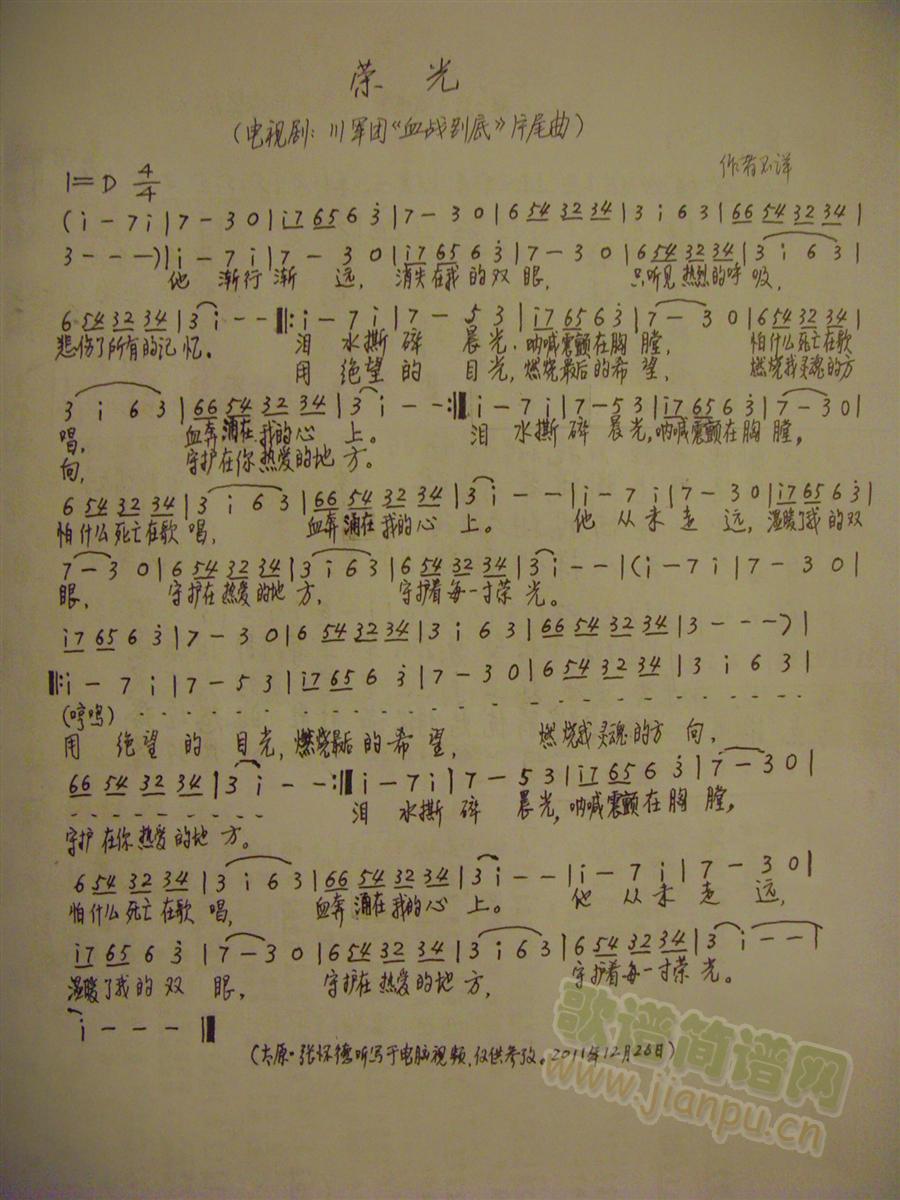 荣光
(电视剧:川军团《血战到底》片尾曲)
作者不详
1=D 4/4
(i - 7 i | 7 - 3 0 | i7 65 6 3 | 7 - 3 0 | 6 54 32 34 | 3 i 6 3 | 66 54 32 34 |
3 - - -) | i - 7 i | 7 - 3 0 | i7 65 6 3 | 7 - 3 0 | 6 54 32 34 | 3 i 6 3 |
他 渐行渐 远, 消失在我的双眼, 只听见热烈的呼吸,
6 54 32 34 | 3 i - - ‖: i - 7 i | 7 - 5 3 | i7 65 6 3 | 7 - 3 0 | 6 54 32 34 |
悲伤了所有的记忆。 泪 水撕碎 晨光,呐喊震颤在胸膛, 怕什么死亡在歌
用 绝望的 目光,燃烧最后的希望, 燃烧我灵魂的方
3 i 6 3 | 66 54 32 34 | 3 i - - :‖ i - 7 i | 7 - 5 3 | i7 65 6 3 | 7 - 3 0 |
唱, 血奔涌在我的心上。 泪 水撕碎晨光,呐喊震颤在胸膛,
向, 守护在你热爱的地方。
6 54 32 34 | 3 i 6 3 | 66 54 32 34 | 3 i - - | i - 7 i | 7 - 3 0 | i7 65 6 3 |
怕什么死亡在歌唱, 血奔涌在我的心上。 他 从未走远,温暖了我的双
7 - 3 0 | 6 54 32 34 | 3 i 6 3 | 6 54 32 34 | 3 i - - | (i - 7 i | 7 - 3 0 |
眼, 守护在热爱的地方, 守护着每一寸荣光。
i7 65 6 3 | 7 - 3 0 | 6 54 32 34 | 3 i 6 3 | 66 54 32 34 | 3 - - -) |
‖: i - 7 i | 7 - 5 3 | i7 65 6 3 | 7 - 3 0 | 6 54 32 34 | 3 i 6 3 |
(哼鸣) - - - - - - - - - - - - - - - - - - - - - -
用 绝望的目光,燃烧最后的希望, 燃烧我灵魂的方向,
66 54 32 34 | 3 i - - :‖ i - 7 i | 7 - 5 3 | i7 65 6 3 | 7 - 3 0 |
- - - - - - - - 泪 水撕碎 晨光,呐喊震颤在胸膛,
守护在你热爱的地方。
6 54 32 34 | 3 i 6 3 | 66 54 32 34 | 3 i - - | i - 7 i | 7 - 3 0 |
怕什么死亡在歌唱, 血奔涌在我的心上。 他 从未走远,
i7 65 6 3 | 7 - 3 0 | 6 54 32 34 | 3 i 6 3 | 6 54 32 34 | 3 i - - |
温暖了我的双眼, 守护在热爱的地方, 守护着每一寸荣光。
i - - - ‖
(太原·张怀德听写于电脑视频,仅供参考。2011年12月26日)
歌谱简谱网
www.jianpu.cn